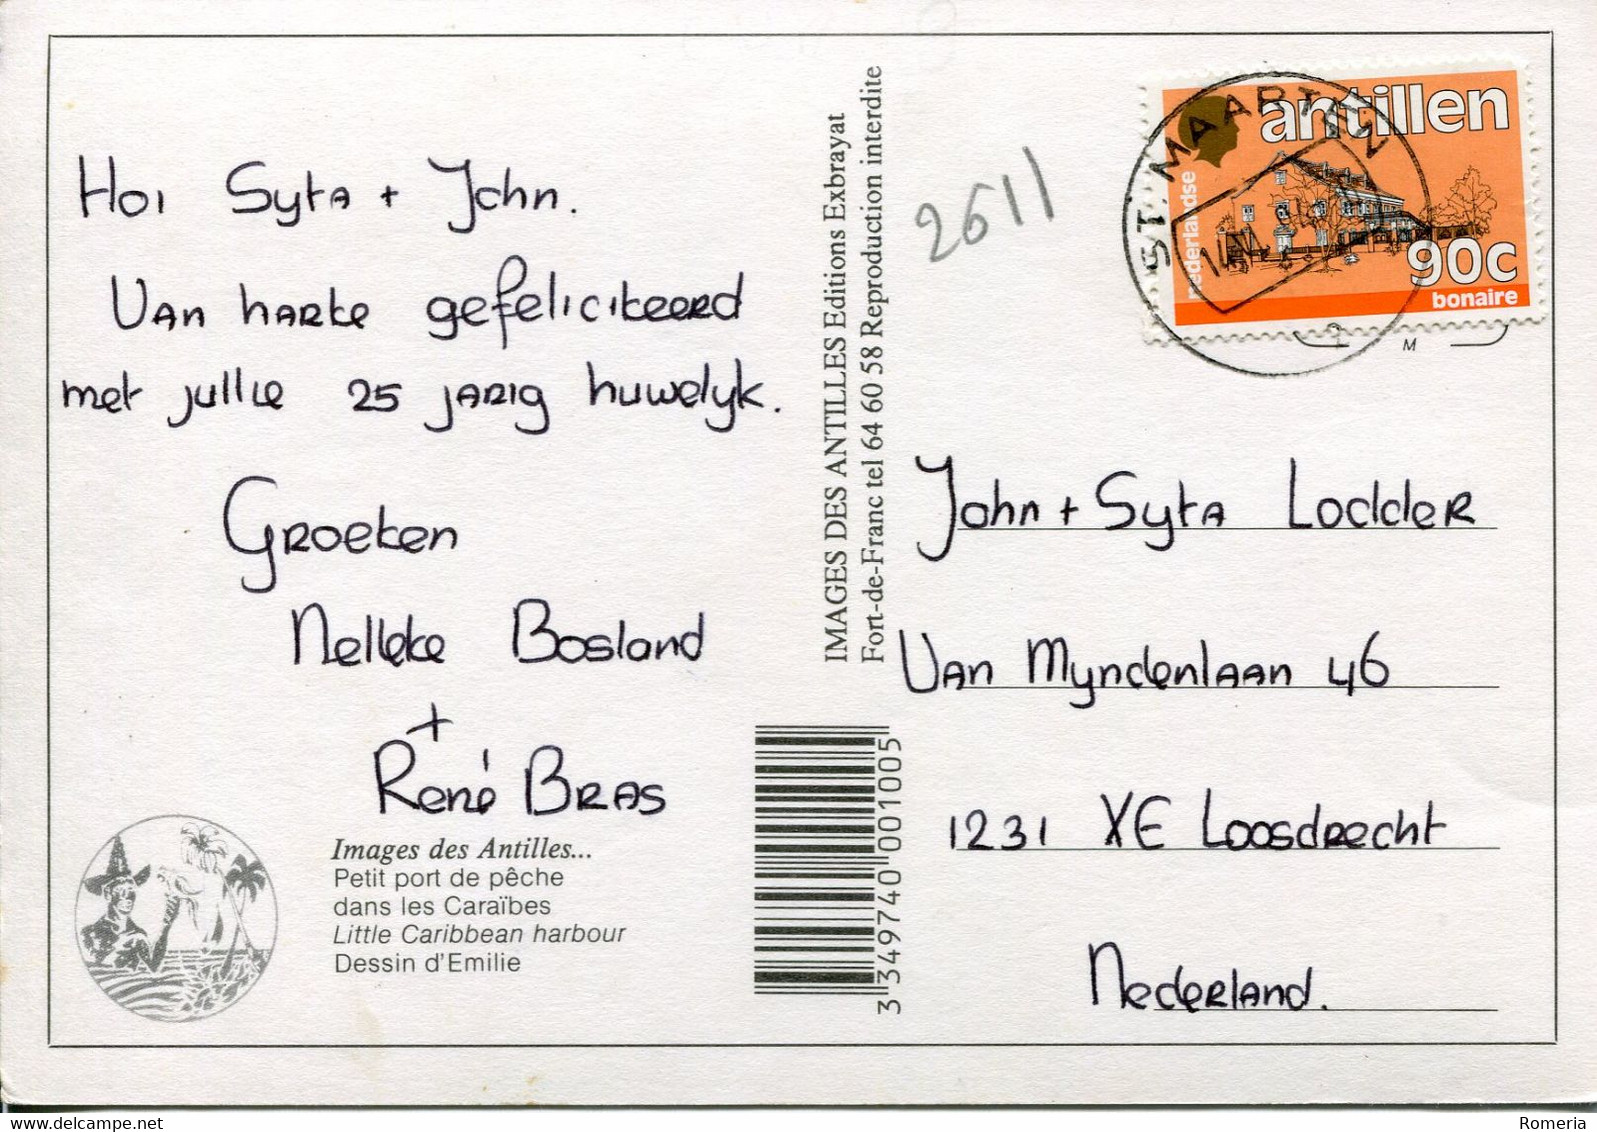 Hoi Syta + John.
Van harte gefeliciteerd
met jullie 25 jarig huwelyk.
Groeten
Nelleke Bosland
+
René Bras
Images des Antilles...
Petit port de pêche
dans les Caraïbes
Little Caribbean harbour
Dessin d'Emilie
IMAGES DES ANTILLES Editions Exbrayat
Fort-de-Franc tel 64 60 58 Reproduction interdite
3 349740 001005
2611
ST. MAARTEN
nederlandse
antillen
90c
bonaire
M
John + Syta Lodder
Van Myndenlaan 46
1231 XE Loosdrecht
Nederland.
delcampe.net
Romeria